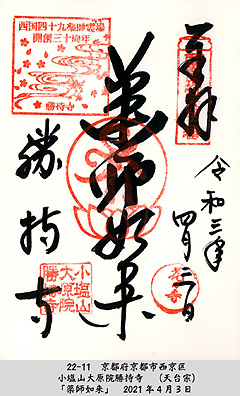 奉拝
令和三年
四月三日
薬師如来
勝持寺
西国四十九薬師霊場
開創三十周年
勝持寺
小塩山
大原院
勝持寺
22-11 京都府京都市西京区
小塩山大原院勝持寺 (天台宗)
「薬師如来」 2021年4月3日